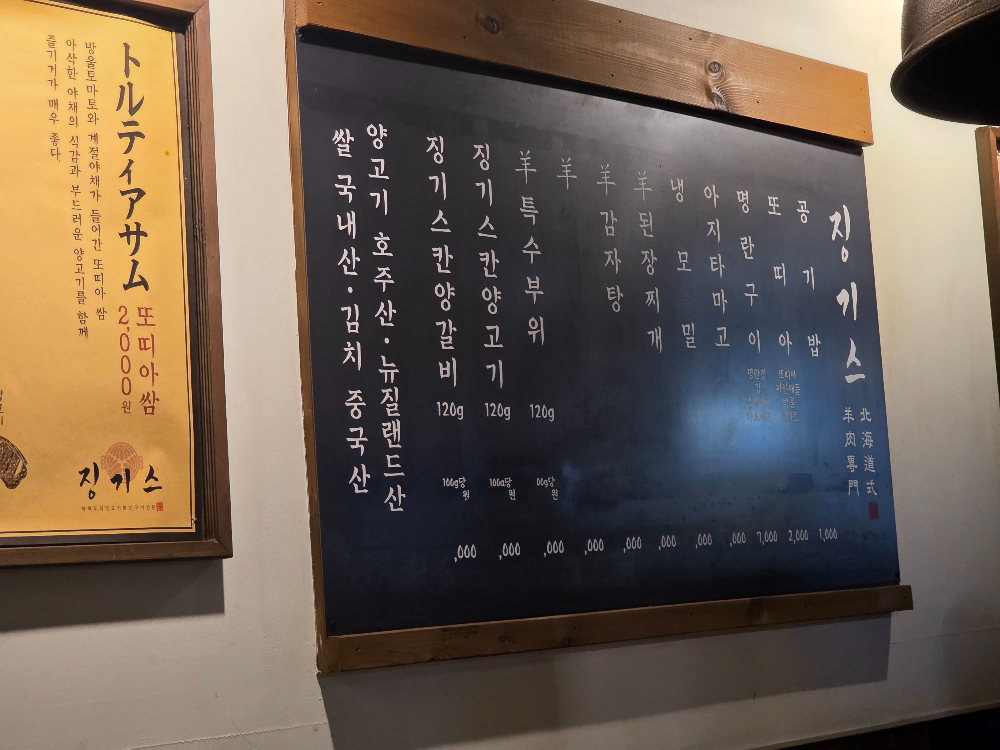 トルティアサム
또띠아쌈
2,000원
방울토마토와 계절야채가 들어간 또띠아 쌈
아삭한 야채의 식감과 부드러운 양고기를 함께
즐기기가 매우 좋다.
징기스
징기스
北海道式
羊肉專門
공기밥 1,000
또띠아 2,000
명란구이 7,000
아지타마고 ,000
냉모밀 ,000
羊된장찌개 ,000
羊감자탕 ,000
羊 ,000
羊특수부위 120g ,000
징기스칸양고기 120g 100g당 원 ,000
징기스칸양갈비 120g 100g당 원 ,000
양고기 호주산·뉴질랜드산
쌀 국내산·김치 중국산